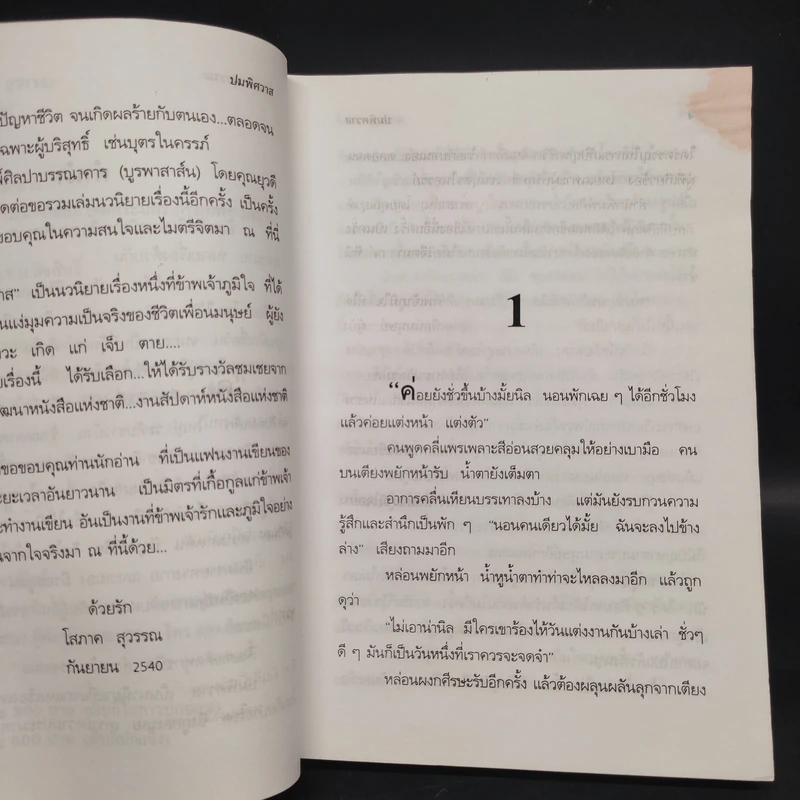 ปมพิศวาส
ปัญหาชีวิต จนเกิดผลร้ายกับตนเอง...ตลอดจน
ฉพาะผู้บริสุทธิ์ เช่นบุตรในครรภ์
ศิลปาบรรณาคาร (บูรพาสาส์น) โดยคุณยุวดี
ดต่อขอรวมเล่มนวนิยายเรื่องนี้อีกครั้ง เป็นครั้ง
อบคุณในความสนใจและไมตรีจิตมา ณ ที่นี่
าส" เป็นนวนิยายเรื่องหนึ่งที่ข้าพเจ้าภูมิใจ ที่ได้
นแง่มุมความเป็นจริงของชีวิตเพื่อนมนุษย์ ผู้ยัง
วะ เกิด แก่ เจ็บ ตาย....
ยเรื่องนี้ ได้รับเลือก...ให้ได้รับรางวัลชมเชยจาก
ฒนาหนังสือแห่งชาติ...งานสัปดาห์หนังสือแห่งชาติ
ขอขอบคุณท่านนักอ่าน ที่เป็นแฟนงานเขียนของ
ะยะเวลาอันยาวนาน เป็นมิตรที่เกื้อกูลแก่ข้าพเจ้า
ะทำงานเขียน อันเป็นงานที่ข้าพเจ้ารักและภูมิใจอย่าง
นจากใจจริงมา ณ ที่นี้ด้วย...
ด้วยรัก
โสภาค สุวรรณ
กันยายน 2540
1
"ค่อยยังชั่วขึ้นบ้างมั้ยนิล นอนพักเฉย ๆ ได้อีกชั่วโมง
แล้วค่อยแต่งหน้า แต่งตัว"
คนพูดคลี่แพรเพลาะสีอ่อนสวยคลุมให้อย่างเบามือ คน
บนเตียงพยักหน้ารับ น้ำตายังเต็มตา
อาการคลื่นเหียนบรรเทาลงบ้าง แต่มันยังรบกวนความ
รู้สึกและสำนึกเป็นพัก ๆ "นอนคนเดียวได้มั้ย ฉันจะลงไปข้าง
ล่าง" เสียงถามมาอีก
หล่อนพยักหน้า น้ำหูน้ำตาทำท่าจะไหลลงมาอีก แล้วถูก
ดุว่า
"ไม่เอาน่านิล มีใครเขาร้องไห้วันแต่งงานกันบ้างเล่า ชั่วๆ
ดี ๆ มันก็เป็นวันหนึ่งที่เราควรจะจดจำ"
หล่อนผงกศีรษะรับอีกครั้ง แล้วต้องผลุนผลันลุกจากเตียง